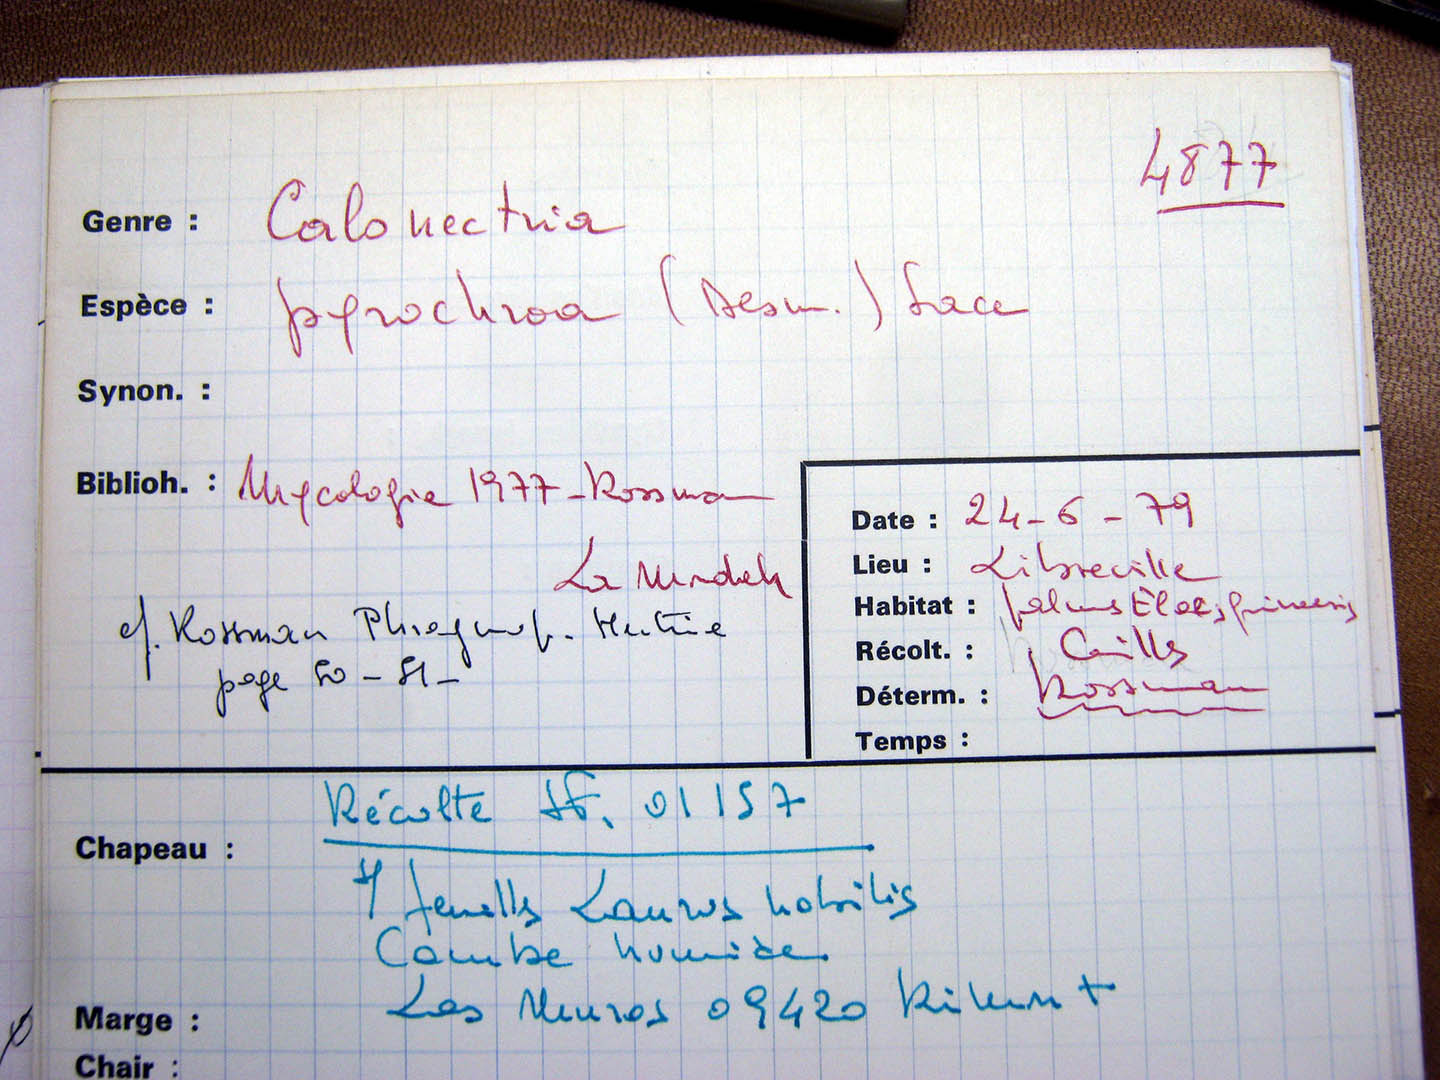 4877
Genre : Calonectria
Espèce : pyrochroa (Desm.) Sacc
Synon. :
Biblioh. : Mycologia 1977 - Rossman
La
cf. Rossman Phragmosp. Nectrie
page 50 - 51 -
Date : 24 - 6 - 79
Lieu : Libreville
Habitat : palmus Elaeis guineensis
Récolt. : Caills
Déterm. : Rossman
Temps :
Récolte 01157
Chapeau :
s/ feuilles Laurus nobilis
Combe humide.
Las Muros 09420 Rimont
Marge :
Chair :